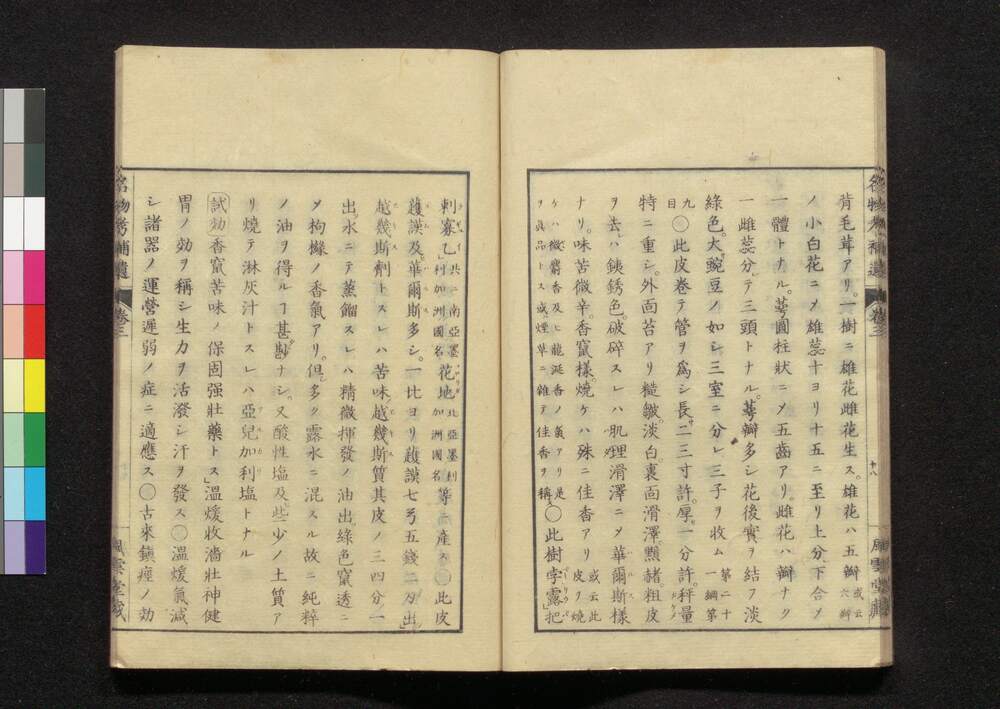 名物考補遺 卷三 十八 風雲堂藏
背毛茸アリ。一樹ニ雄花雌花生ス。雄花ハ五瓣 或云六瓣
ノ小白花ニメ雄蕊十ヨリ十五ニ至リ上分下合メ
一體トナル。萼圓柱狀ニメ五齒アリ。雌花ハ瓣ナク
一雌蕊分テ三頭トナル。萼瓣多シ花後實ヲ結フ淡
綠色。大豌豆ノ如シ三室ニ分レ三子ヲ收ム 第二十一綱第
九目 ○此皮卷テ管ヲ爲シ長サ二三寸許。厚一分許。秤量
特ニ重シ。外面苔アリ糙皺。淡白。裏面滑澤。黯赭。粗皮
ヲ去レハ銕銹色。破碎スレハ肌理滑澤ニメ華爾斯樣
ナリ。味苦微辛。香竄樣。燒ケハ殊ニ佳香アリ 或云此皮ヲ燒
ケハ微麝香及ヒ龍涎香ノ氣アリ是
ヲ眞品トス或煙草ニ雜テ佳香ヲ稱ス ○此樹字露把
剌寡乙 共ニ南亞墨利加洲國名 花地 北亞墨利加洲國名 等ニ產ス○此皮
護謨及華爾斯多シ。一比ヨリ護謨七弖五錢二刄出
越幾斯劑トスレハ苦味越幾斯質其皮ノ三四分ノ一
出。水ニテ蒸餾スレハ精微揮發ノ油出。綠色竄透ニ
メ枸櫞ノ香氣アリ。但多ク露水ニ混スル故ニ純粹
ノ油ヲ得ルヿ甚尠ナシ。又酸性塩及些少ノ土質ア
リ燒テ淋灰汁トスレハ亞兒加利塩トナル
試効 香竄苦味ノ保固强壯藥トス」溫煖收濇壯神健
胃ノ効ヲ稱シ生力ヲ活潑シ汗ヲ發ス○溫煖氣減
シ諸器ノ運營遲弱ノ症ニ適應ス○古來鎭痙ノ効
名物考補遺 卷三 風雲堂藏